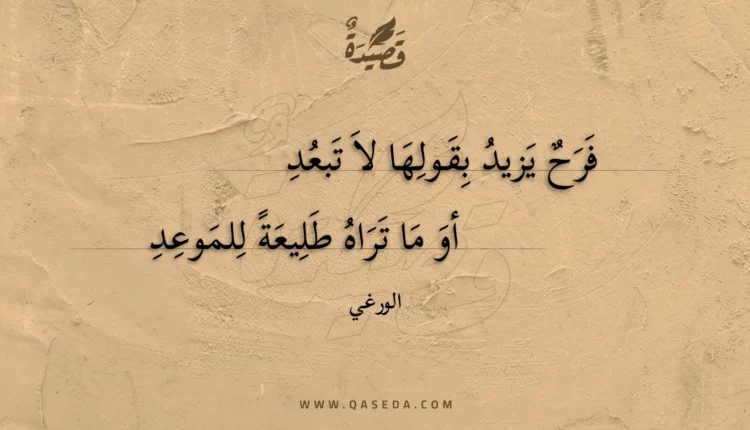 قَصِيْدَةٌ
فَرَحٌ يَزيدُ بِقَولِهَا لاَ تَبعُدِ
أوَ مَا تَرَاهُ طَلِيعَةً لِلمَوعِدِ
الورغي
WWW.QASEDA.COM